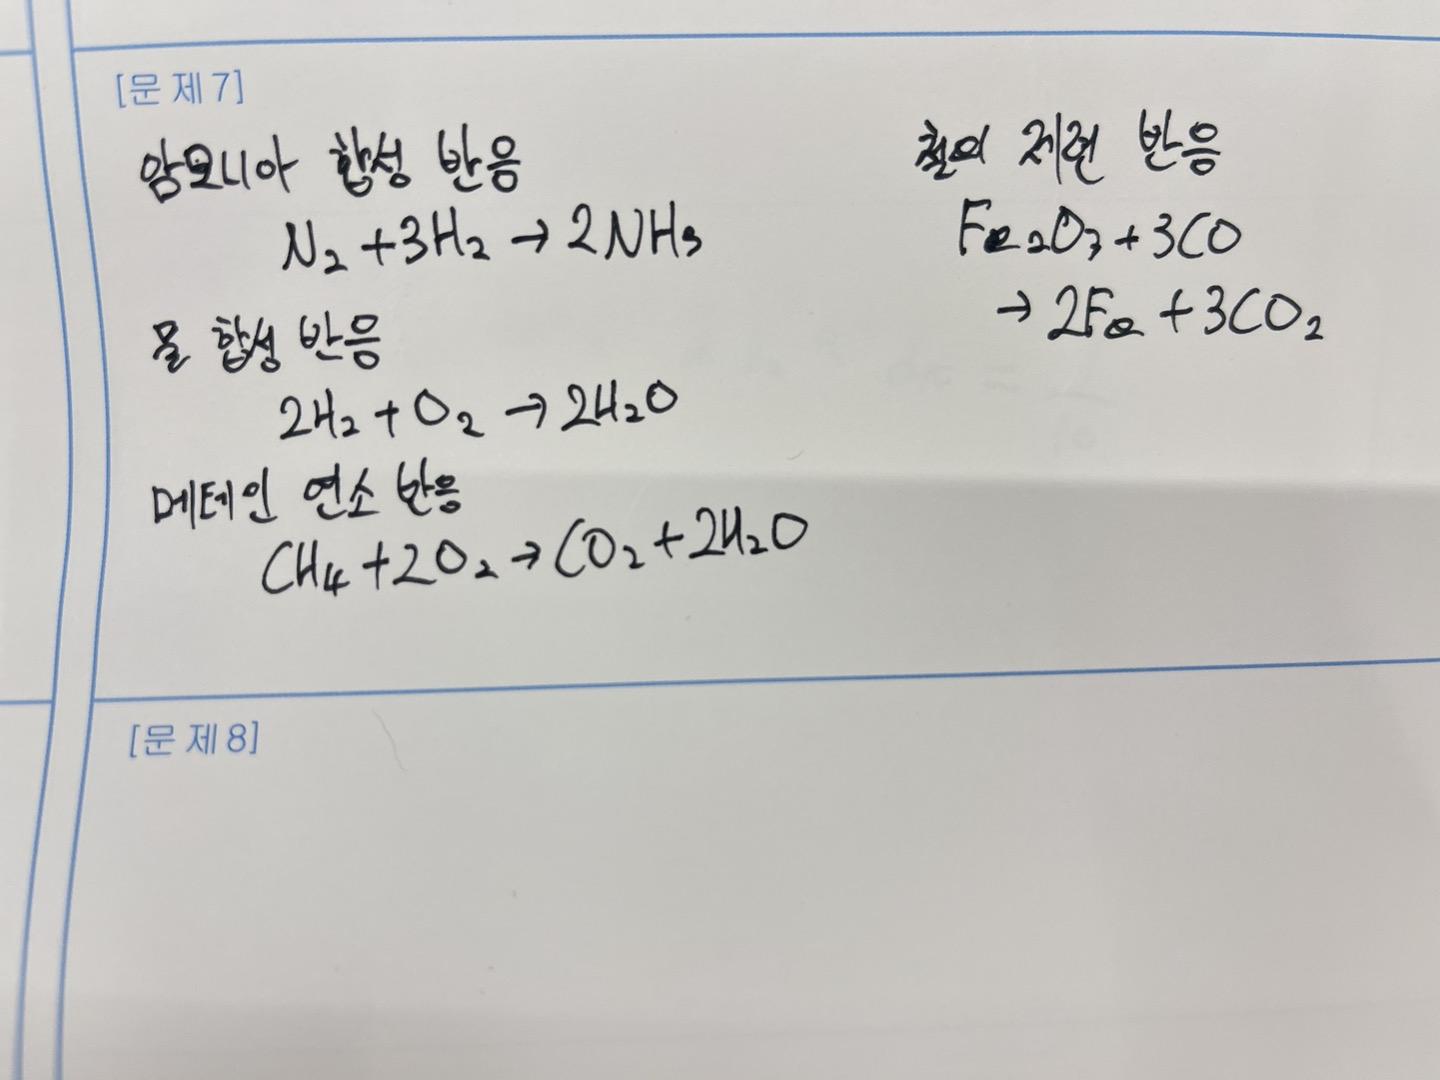 [문 제 7]
암모니아 합성 반응
N₂ + 3H₂ → 2NH₃
물 합성 반응
2H₂ + O₂ → 2H₂O
메테인 연소 반응
CH₄ + 2O₂ → CO₂ + 2H₂O
철의 제련 반응
Fe₂O₃ + 3CO
→ 2Fe + 3CO₂
[문 제 8]